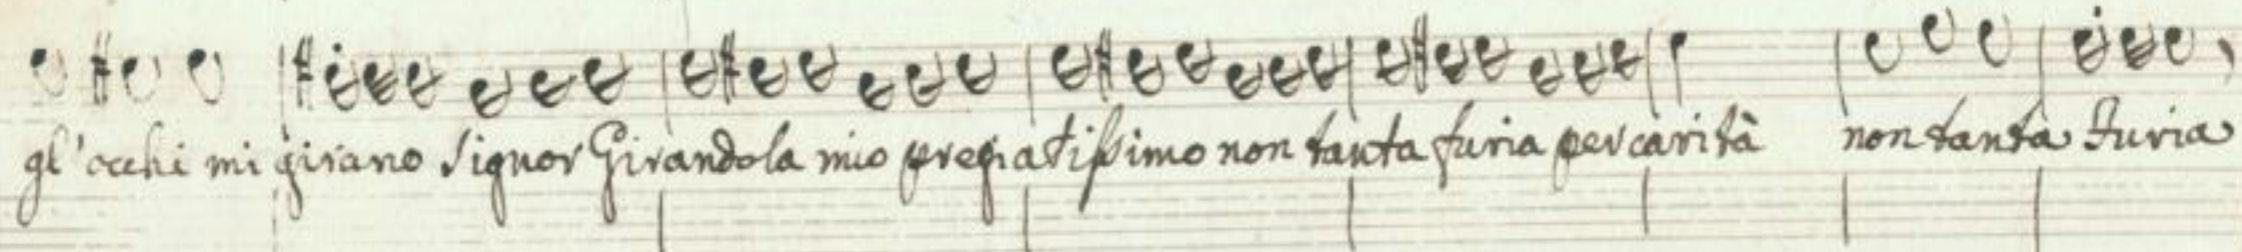 gl'occhi mi girano Signor Girandola mio pregiatissimo non tanta furia per carità non tanta furia